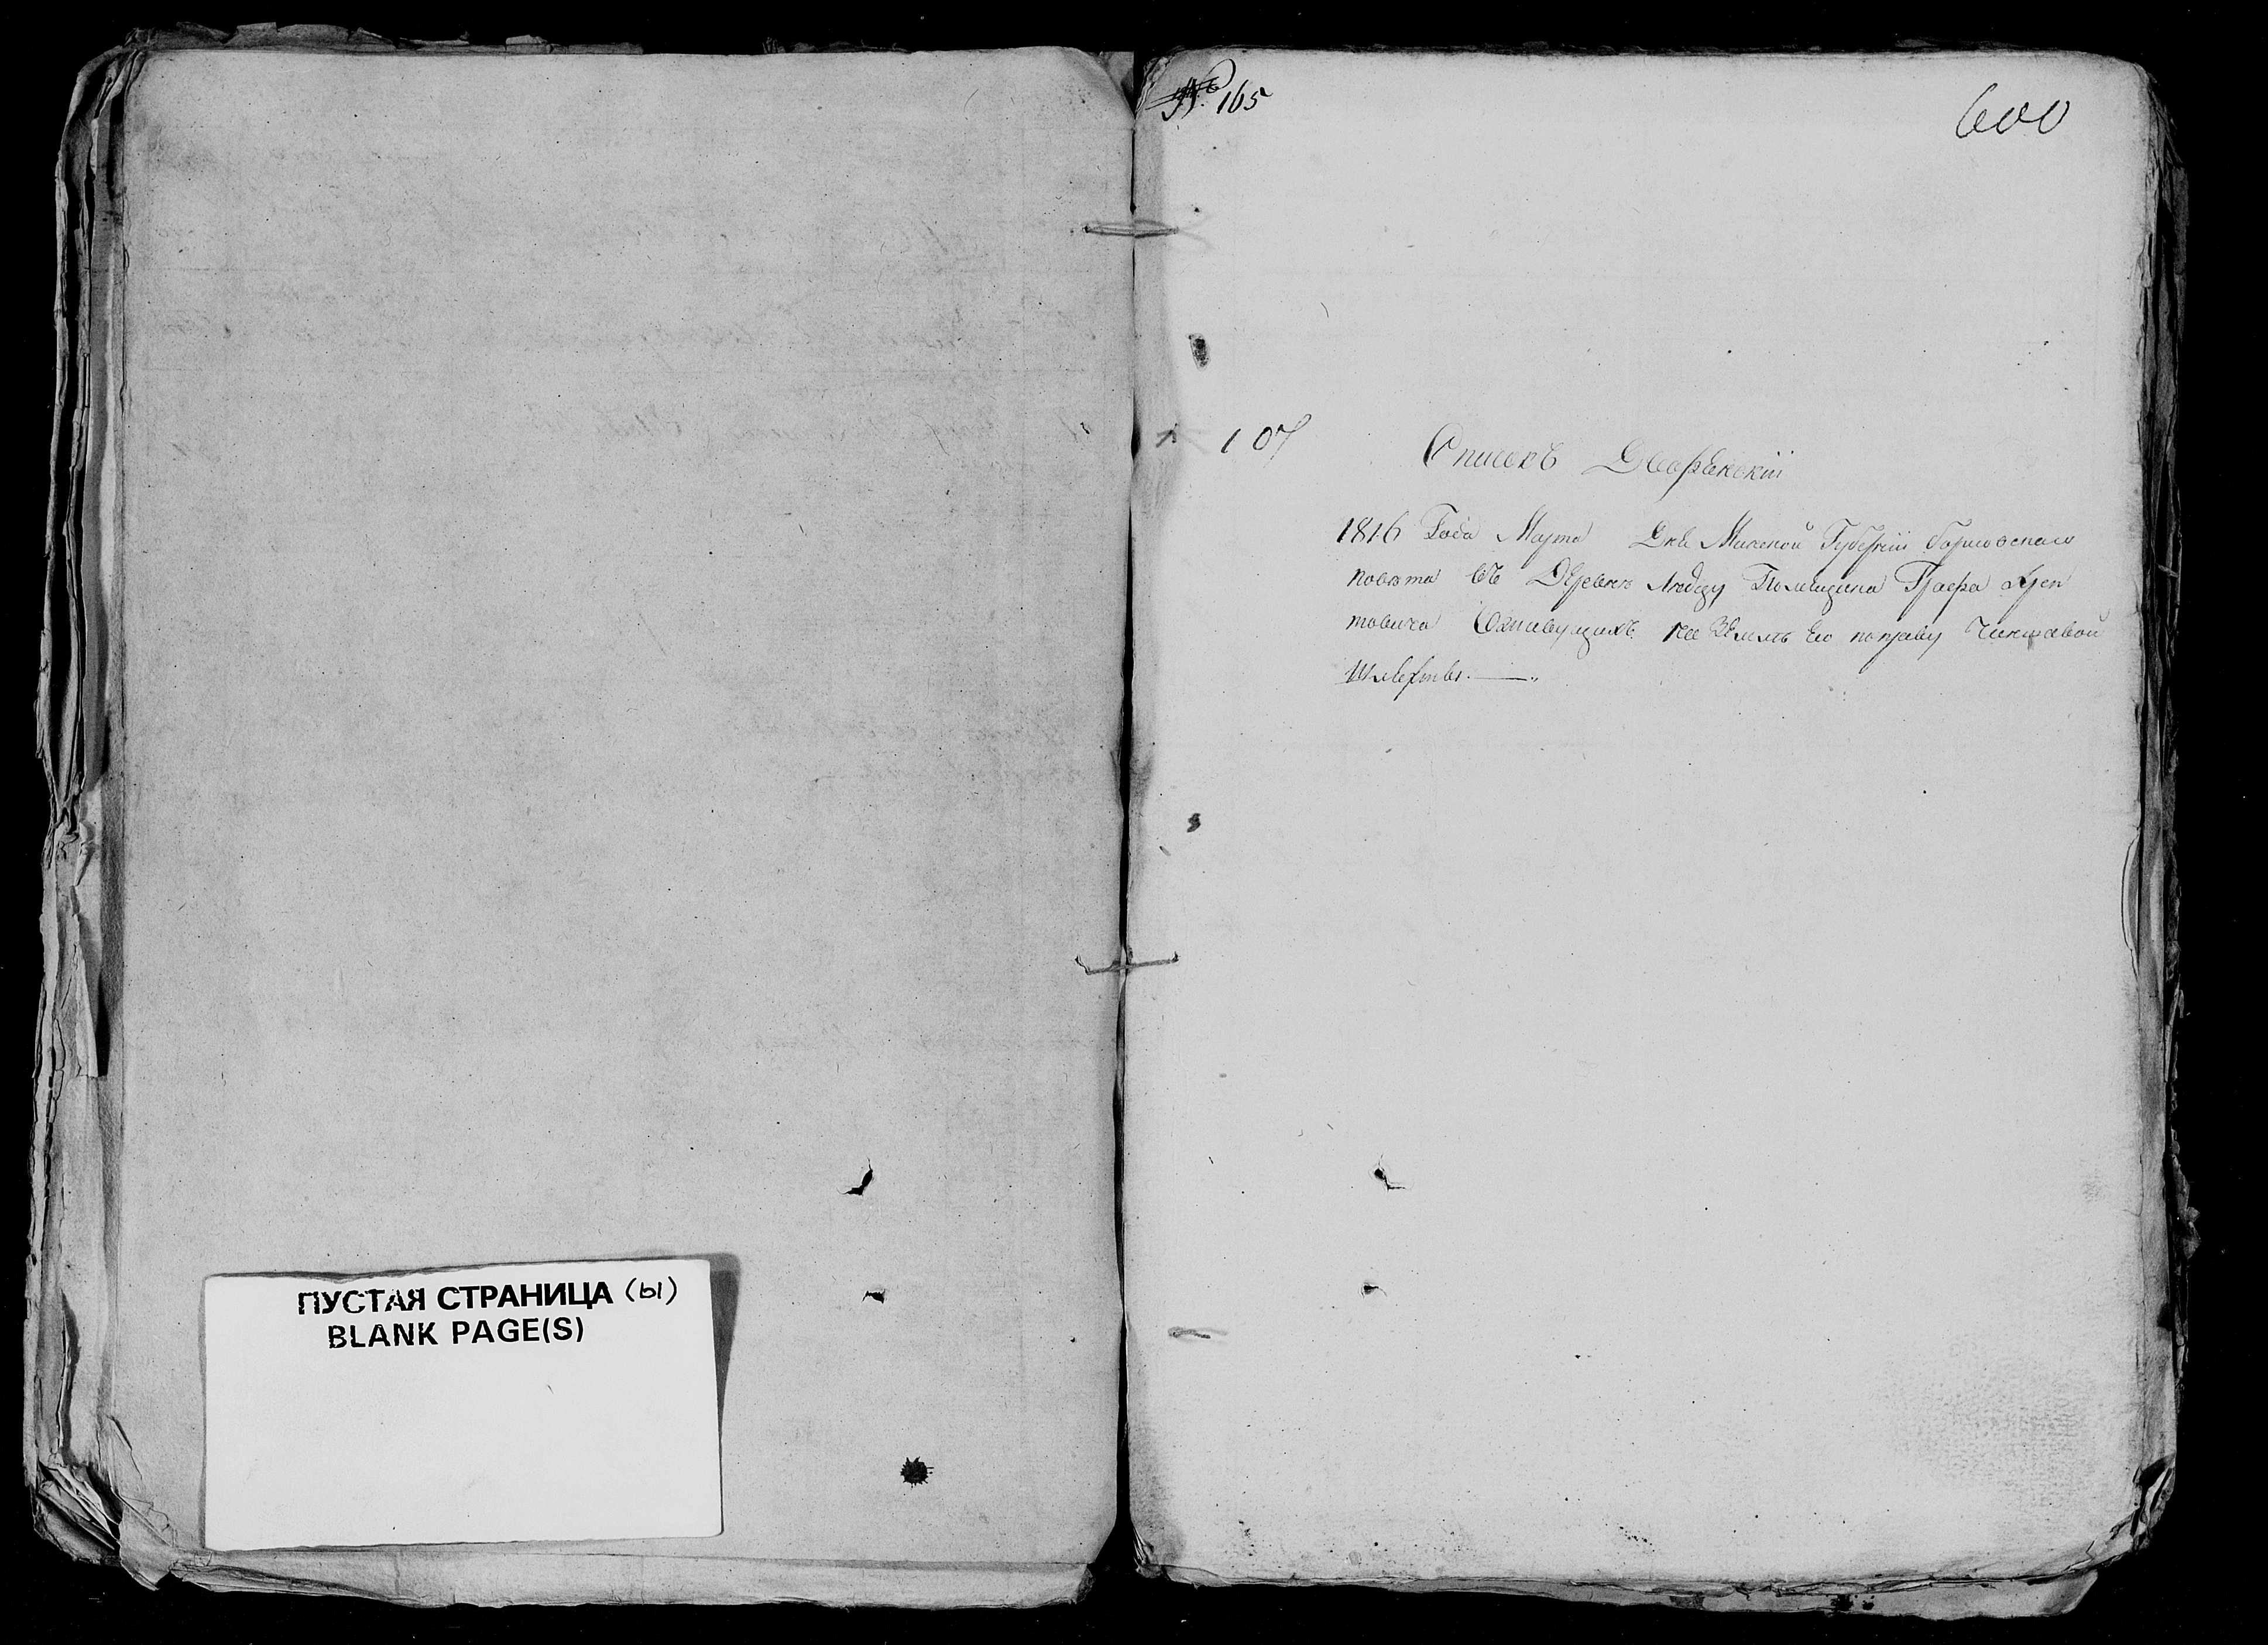 ПУСТАЯ СТРАНИЦА (ы)
BLANK PAGE(S)
№ 165
600
107
Списокъ Дворянскій
1816 Года Марта Дня Минской Губерніи борисовскаго
повѣта въ Деревнѣ Помещика Графа Хреп
товича Оживущихъ на Землѣ Его поправу Чиншовой
Шляхты.